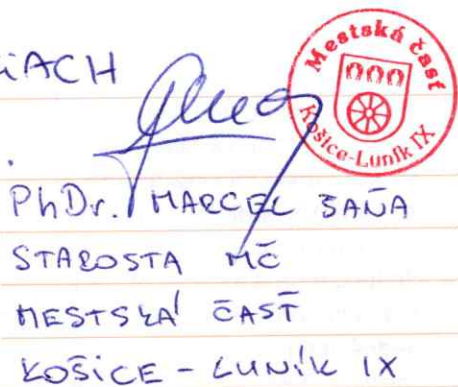 iACH
Mestská časť
Košice-Luník IX
PhDr. MARCEL ŠAŇA
STAROSTA MČ
MESTSKÁ ČASŤ
KOŠICE - LUNÍK IX